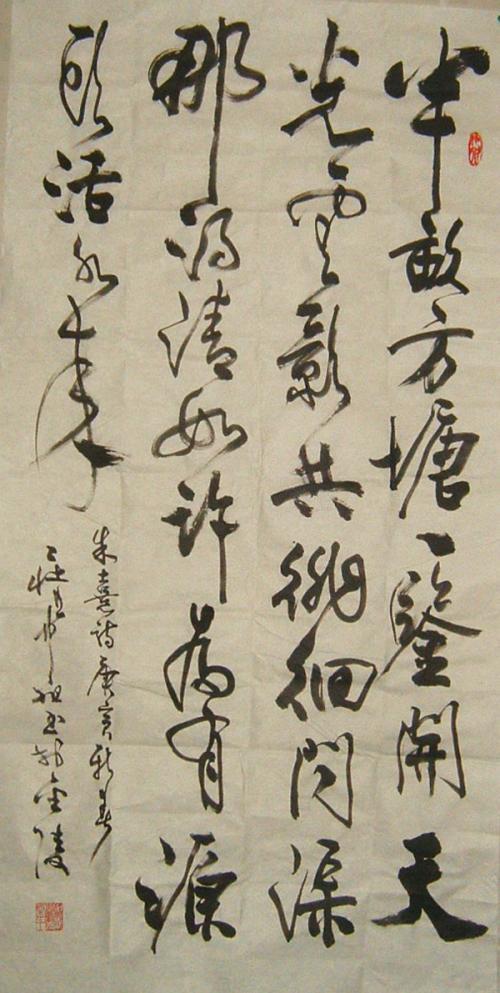 半畝方塘一鑒開天
光雲影共徘徊問渠
那得清如許為有源
頭活水來
朱熹詩庚寅新春
書於金陵